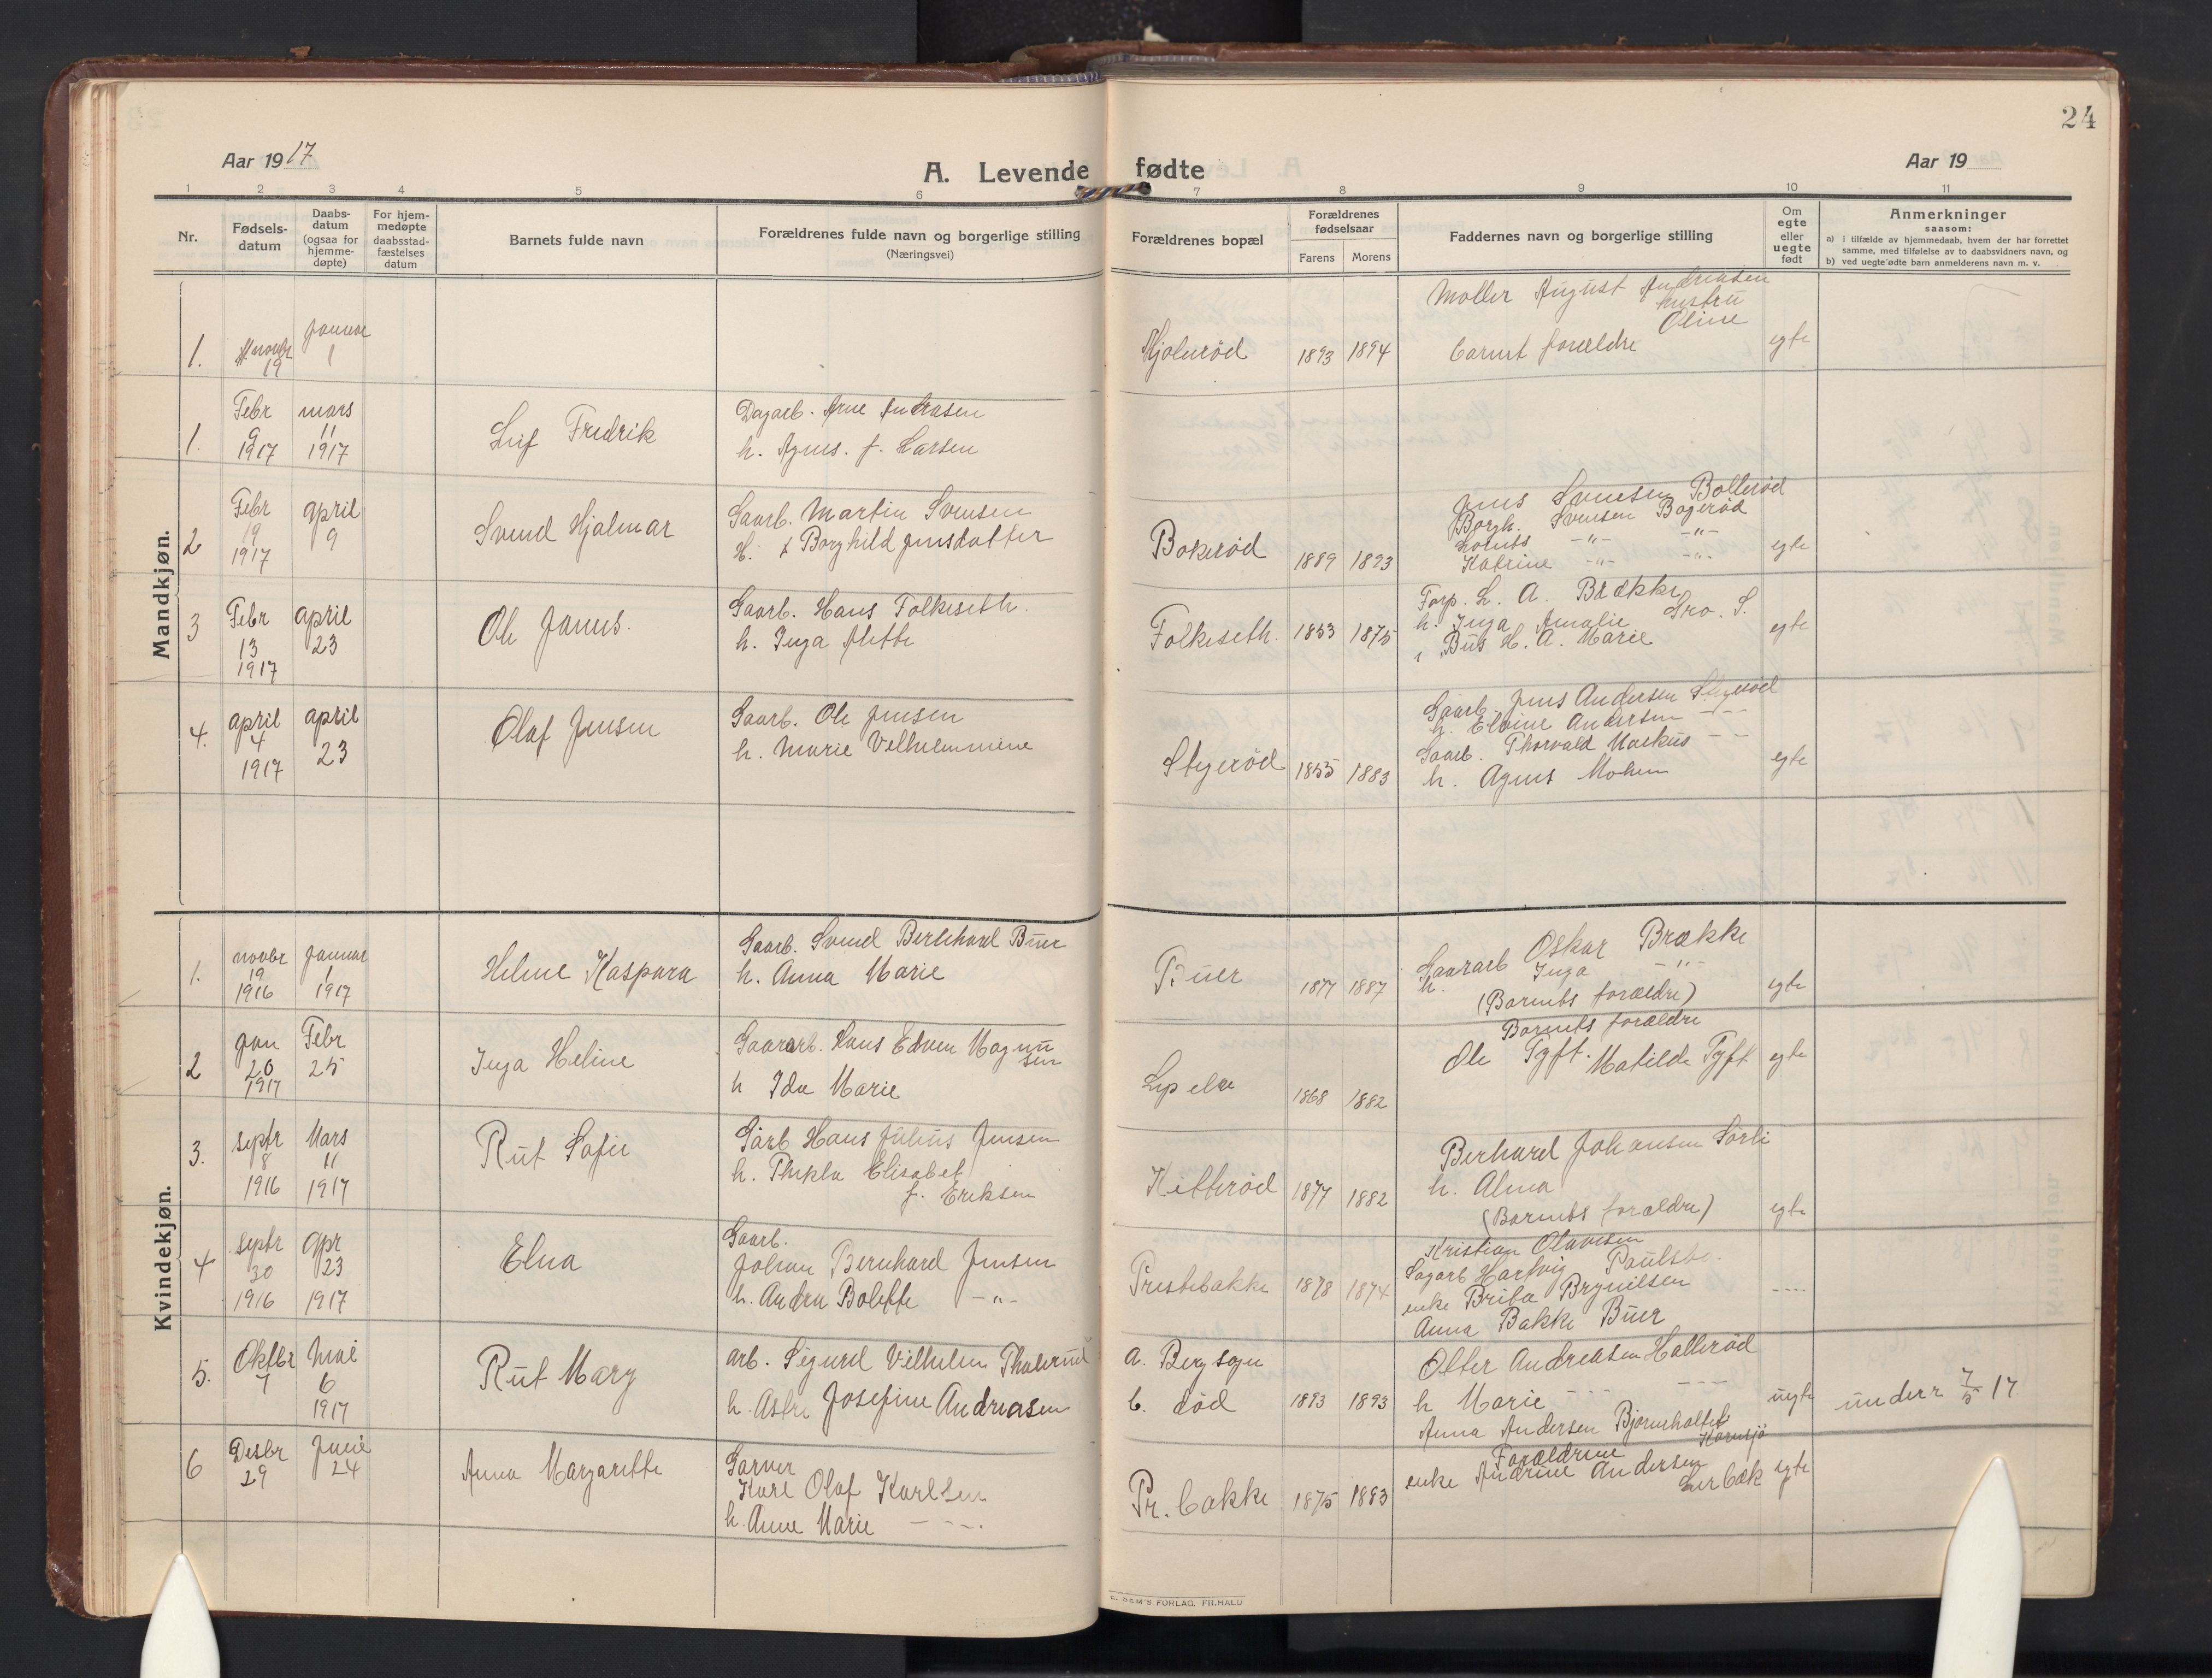 24
Aar 1917
A. Levende fødte
Aar 19
1 2 3 4 5 6 7 8 9 10 11
Nr.
Fødsels-
datum
Daabs-
datum
(ogsaa for
hjemme-
døpte)
For hjem-
medøpte
daabsstad-
fæstelses
datum
Barnets fulde navn
Forældrenes fulde navn og borgerlige stilling
(Næringsvei)
Forældrenes bopæl
Forældrenes
fødselsaar
Farens Morens
Faddernes navn og borgerlige stilling
Om
egte
eller
uegte
født
Anmerkninger
saasom:
a) i tilfælde av hjemmedaab, hvem der har forrettet
samme, med tilføielse av to daabsvidners navn, og
b) ved uegte fødte barn anmelderens navn m. v.
Mandkjøn.
1.
19
Januar
1
1893 1894
August Andreasen
hustru
Oline
forældre
egte
1.
Febr
9
1917
mars
11
1917
Leif Fredrik
Dagarb. Arne Andreasen
h. Agnes. f. Larsen
2
Febr
19
1917
april
9
Svend Hjalmar
Gaarb. Martin Svensen
H. f Borghild Jensdatter
Bokerød
1889 1893
Jens Svensen Bollerød
Borgh. Svensen
-"- -"-
Katrine -"- -"-
egte
3
Febr
13
1917
april
23
Ole Janus.
Gaarb. Hans Folkeseth.
h. Inga Alette
Folkeseth.
1853 1875
Forp. L. A. Brække
h. Inga Amalie
H. A. Marie
egte
4.
april
4
1917
april
23
Olaf Jensen
Gaarb. Ole Jensen
h. Marie Vilhelmmine
Stygerød
1855 1883
Gaarb. Jens Andersen Stygerød
h. Elvine Andersen - - -
Gaarb. Thorvald Markus - -
h. Agnes Mohen
egte
Kvindekjøn.
1.
novbr
19
1916
Januar
1
1917
Helene Kaspara
Gaarb. Svend Bernhard Buer
h. Anna Marie
Buer
1877 1887
Gaararb Oskar Brække
h. Inga -"-
(Barnets forældre)
egte
2
Jan
20
1917
Febr
25
Inga Heline
Gaararb. Hans Edven Magnu
sen
h Ida Marie
1868 1882
Barnets forældre
Ole Tyft. Matilde Tyft
egte
3.
septr
8
1916
Mars
11
1917
Rut Sofie
Hans Julius Jensen
h. Thekla Elisabet
f. Eriksen
Ketterød
1877 1882
Berhard Johansen Sørli
h. Alma
(Barnets forældre)
egte
4
septr
30
1916
apr
23
1917
Elna
Gaarb.
Johan Bernhard Jensen
h. Andrea Bolette -"-
Prestebakke
1878 1874
Kristian Olavesen
Hartvig
enke Brita Brynilsen
Anna Bakke Buer
5.
Oktbr
7
Mai
6
1917
Rut Mary
arb. Sigurd Vilhelm
h. Josefine Andreasen
a. Berg sogn
b. død
1893 1893
Otter Andreasen Hallerød
h Marie - - -
Anna Andersen Bjørneholtet
Kornsjø
uegte
7/5 17
6
Desbr
29
Juni
24
Anna Margarethe
Garver
Karl Olaf Karlsen
h. Anne Marie - - -
Pr. bakke
1875 1883
Forældrene
enke Andrine Andersen
Lerbæk
egte
E. SEM'S FORLAG, FR.HALD